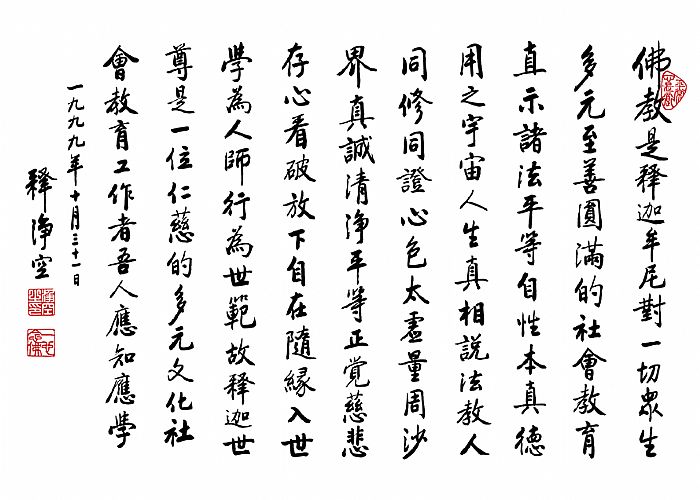 佛教是釋迦牟尼對一切眾生
多元至善圓滿的社會教育
直示諸法平等自性本真德
用之宇宙人生真相說法教人
同修同證心包太虛量周沙
界真誠清淨平等正覺慈悲
存心看破放下自在隨緣入世
學為人師行為世範故釋迦世
尊是一位仁慈的多元文化社
會教育工作者吾人應知應學
一九九九年十月三十一日
釋淨空